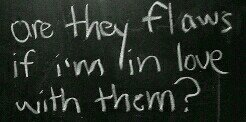 are they flaws
if i'm in love
with them?